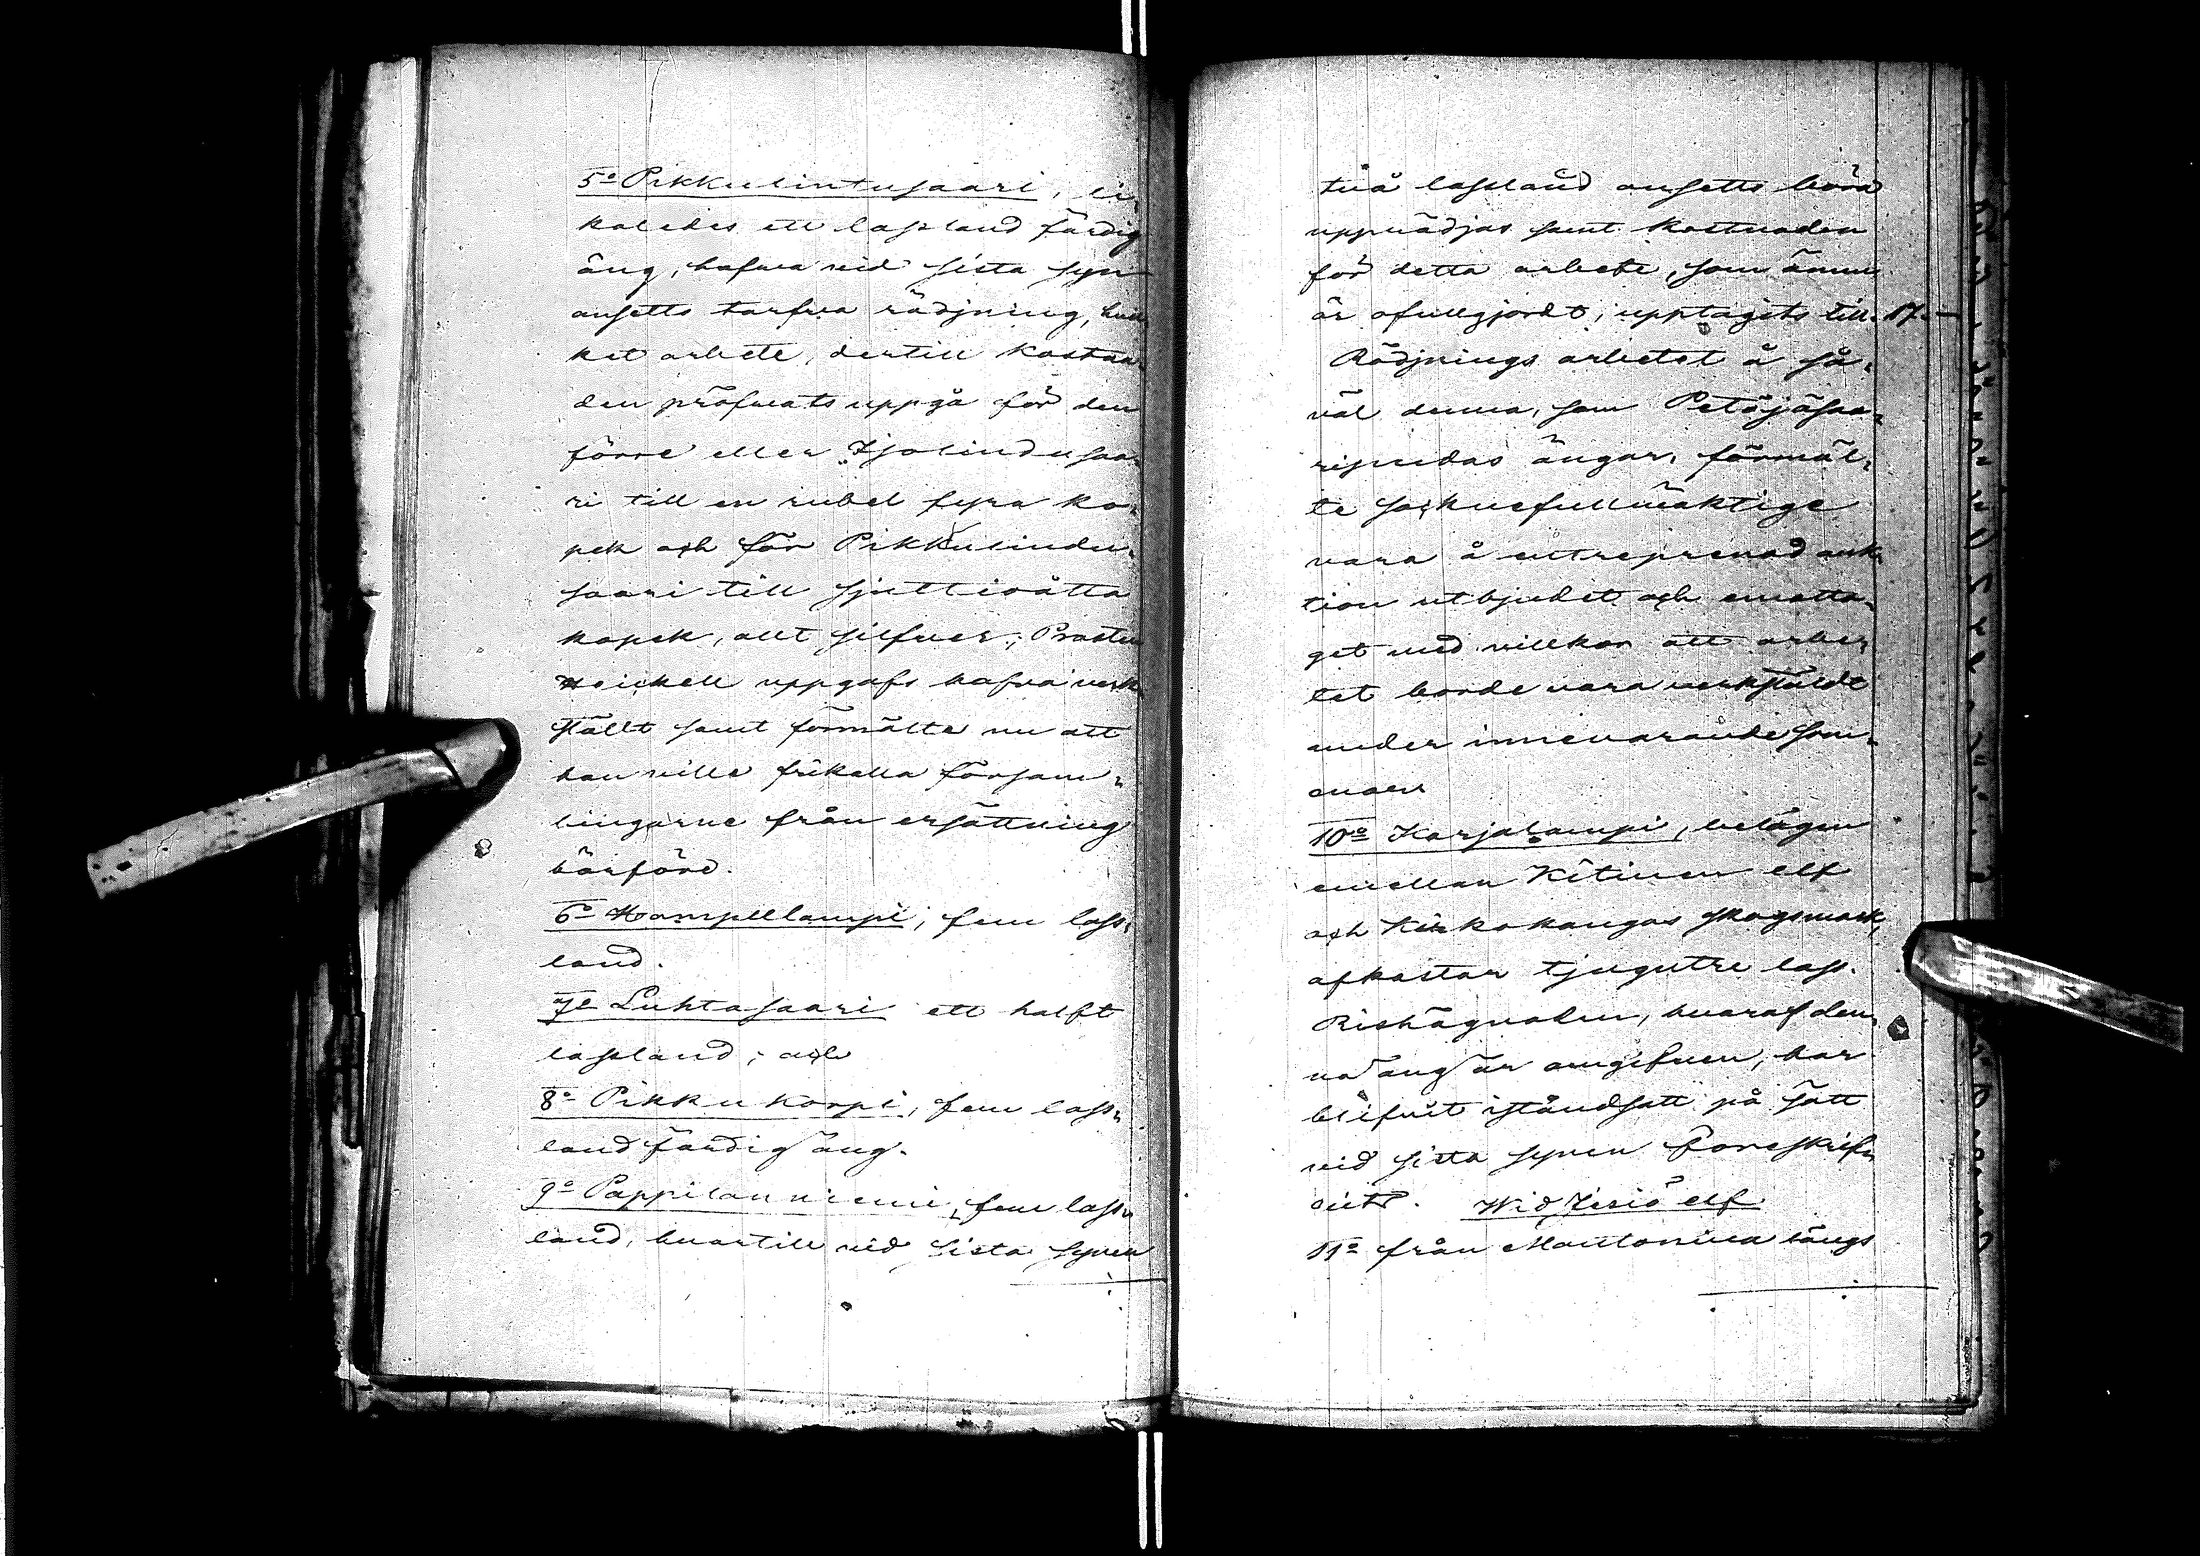 5o Pikkulintusaari, li-
kaledes ett lassland färdig
äng, hafva vid sista syn
ansetts tarfva rödjning, hvil-
ket arbete, dertill kostna-
den pröfvats uppgå för den
förre eller Isolindusaa-
ri till en rubel fyra ko-
pek och för Pikkulindu-
saari till sjuttioåtta
kopek, allt silfver; Prosten
Heickell uppgafs hafva verk-
ställt samt förmälte nu att
han ville frikalla försam-
lingarne från ersättning
härföre.
6o Hampellampi, fem lass-
land.
7o Luhtasaari ett halft
lassland; och
8o Pikkukorpi, fem lass-
land färdig äng.
9o Pappilanniemi, fem lass-
land, hvartill vid sista synen
två lassland ansetts böra
upprödjas samt kostnaden
för detta arbete, som ännu
är ofullgjordt, upptagits till 17.-
Rödjnings arbetet å så-
väl denna, som Petäjäsaa-
ripudas ängar, förmäl-
te socknefullmäktige
vara å entreprenad auk-
tion utbjudet och emotta-
get med villkor att arbe-
tet borde vara verkställdt
under innevarande som-
mar
10o Karjalampi, belägen
emellan Kitinen elf
och Kirkokangas skogsmark,
afkastar tjugutre lass.
Rishägnaden, hvaraf den-
na äng är omgifven, har
blifvit iståndsatt på sätt
vid sista synen föreskrif-
vits. Wid Jesiö elf
11o från Mantovaara längs